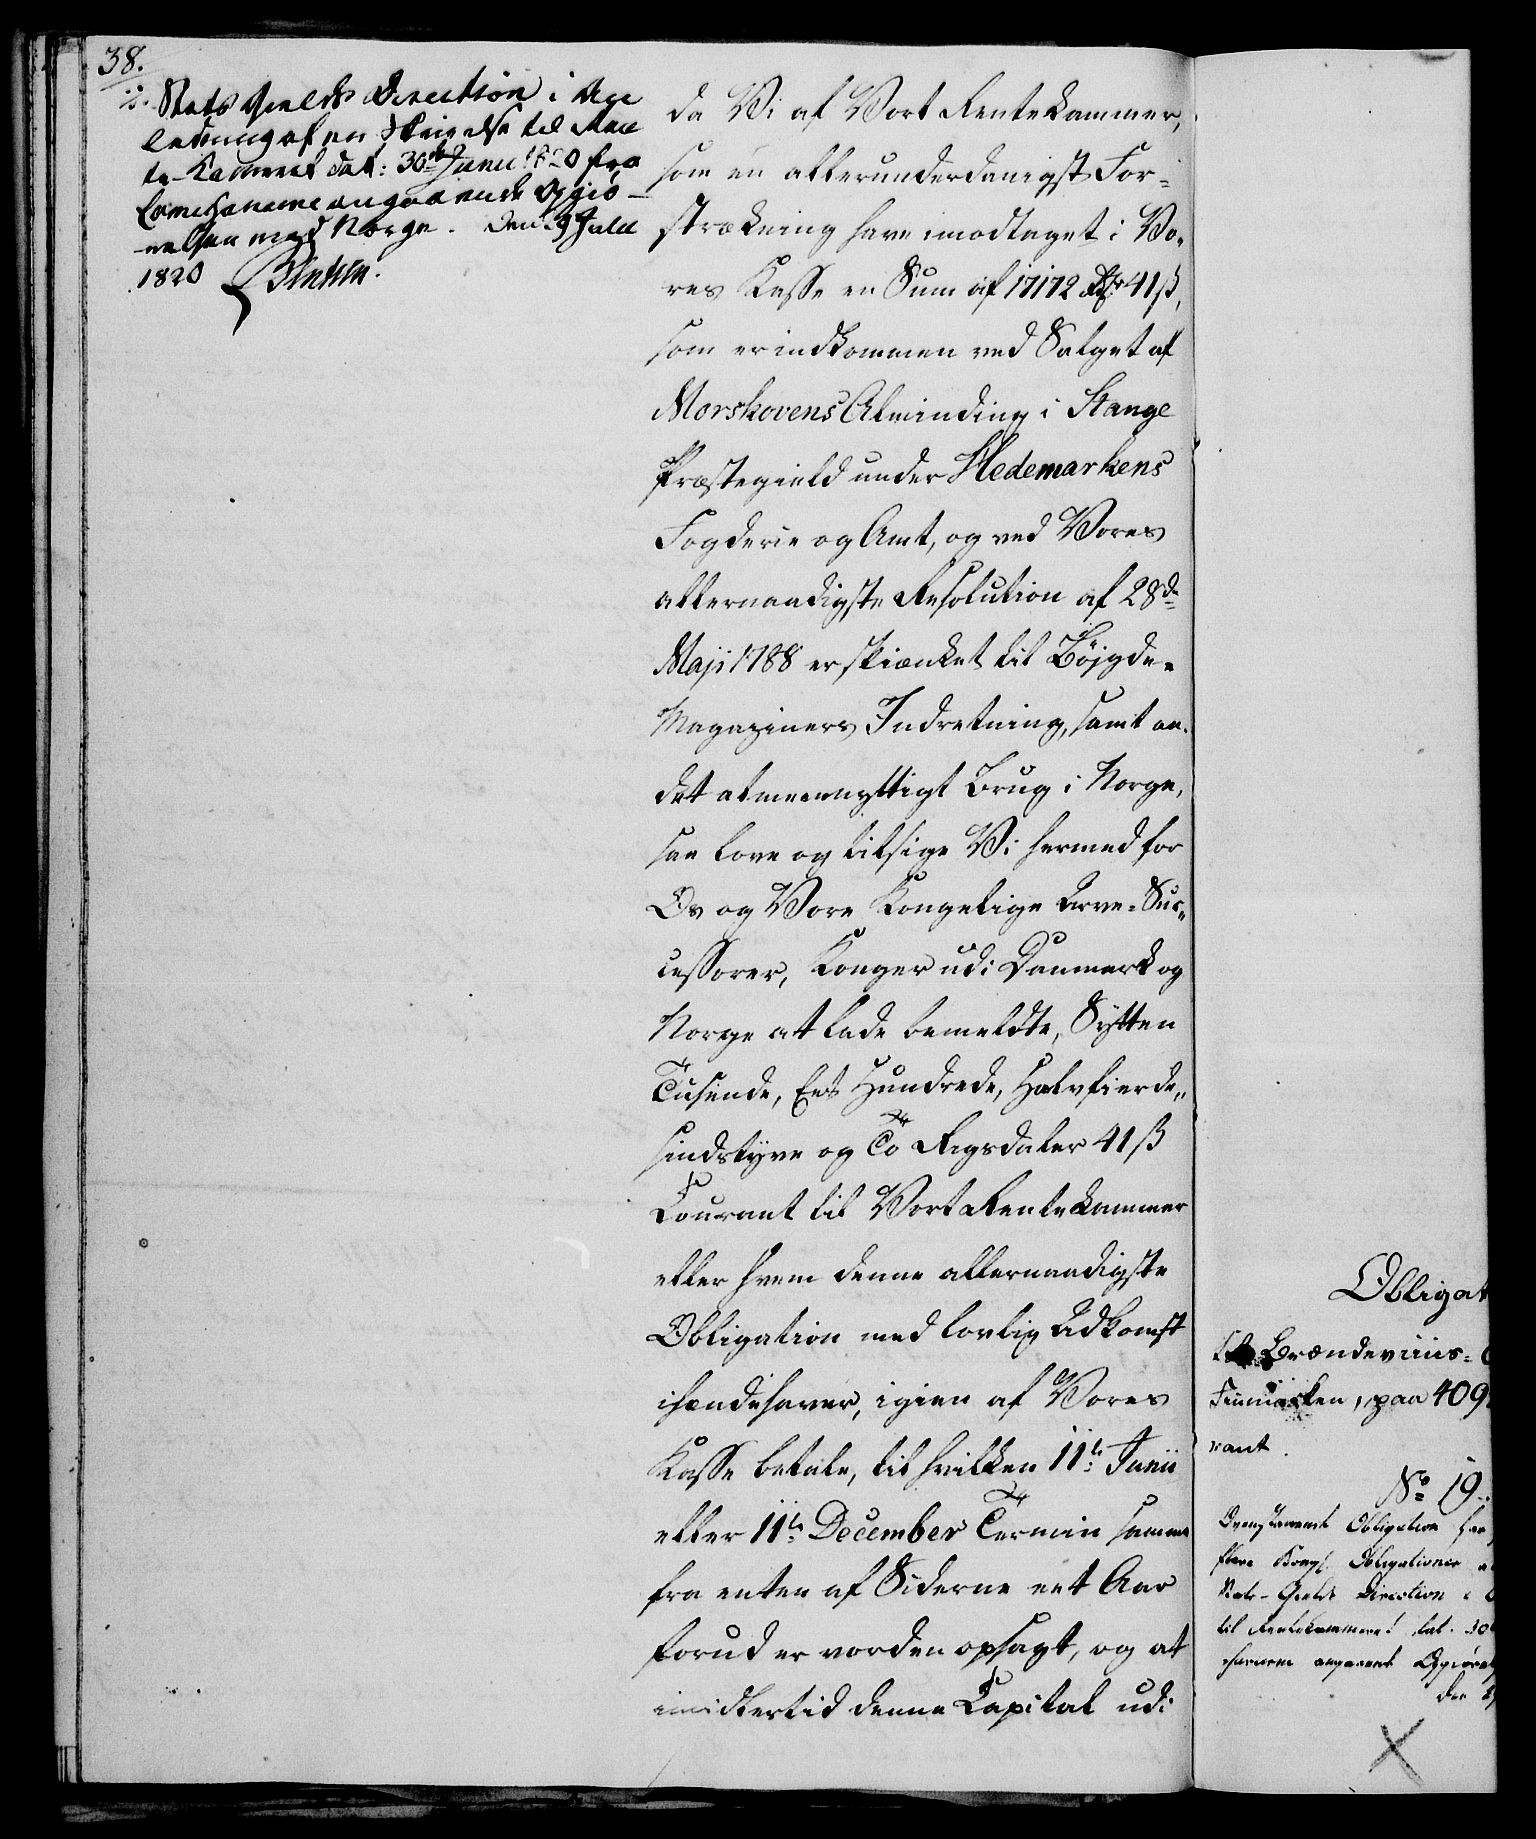 38.
./. Stats Gields Direction i An
ledning af en Skrivelse til Ren
te-Kammeret dat: 30te Junii 1820 fra
samme angaaende Opgiø-
relsen med Norge. Den 3 Juli
1820
da Vi af Vort Rentekammer,
som en allerunderdanigst For-
strækning have modtaget i Vo-
res Kasse en Sum af 17172 Rdr 41 ß,
som er indkommen ved Salget af
Morskovens Alminding i Stange
Præstegield under Hedemarkens
Fogderie og Amt, og ved Vores
allernaadigste Resolution af 28de
Maji 1788 er skienket til Böjgde-
Magaziners Indretning, samt an-
det almeennyttigt Brug i Norge,
saa love og tilsige Vi hermed for
Os og Vore Kongelige Arve-Suc-
cessorer, Konger udi Danmark og
Norge at lade bemeldte, Sytten
Tusende, Eet Hundrede, Halvfierde-
sindstyve og To Rigsdaler 41 ß
Courant til Vort Rentekammer
eller hvem denne allernaadigste
Obligation med lovlig Adkomst
ihændehaver, igien af Vores
Kasse betale, til hvilken 11te Junii
eller 11te December Termin samme
fra enten af Siderne eet Aar
forud er vorden opsagt, og at
imidlertid denne Capital udi
Obligat
Brændeviins-
Finmarken, paa 409
rant.
No 19
Ovenstaaende Obligation har
flere Kongl. Obligationer
Stats-Gields Direction i
til Rentekammeret dat. 30
angaaende Opgiørel
den